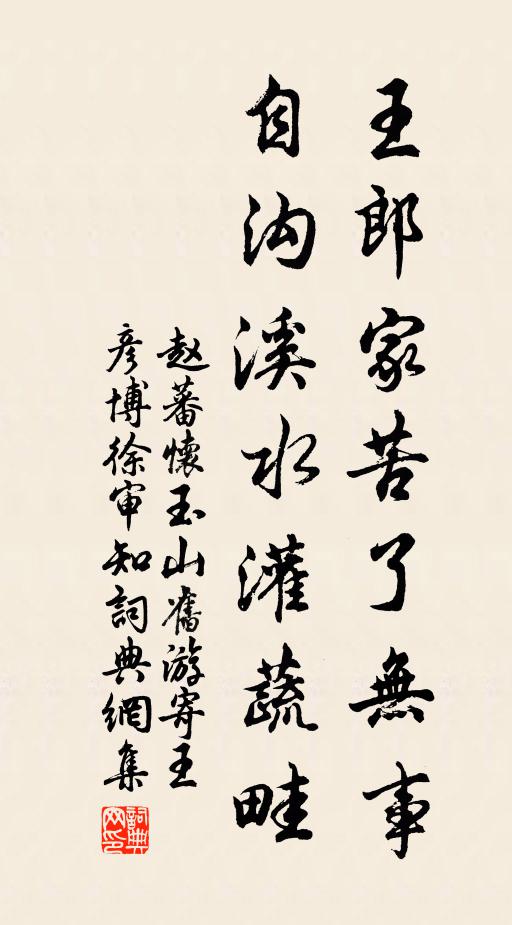 王郎家苦了無事
自沟溪水灌蔬畦
赵蕃懷玉山舊游寄王
彦博徐审知詞典網集
詞典网印